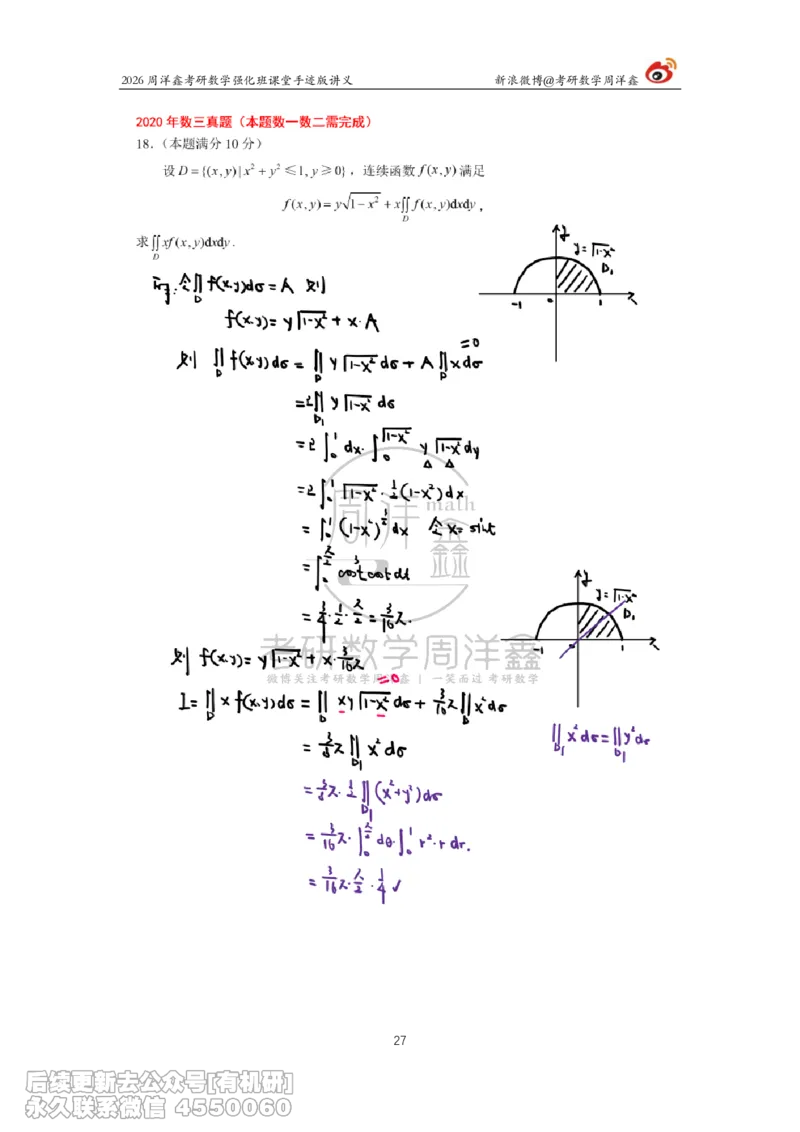 2026 周洋鑫考研数学强化班课堂手迹版讲义
新浪微博@考研数学周洋鑫
2020 年数三真题（本题数一数二需完成）
18.（本题满分 10 分）
设 D = {(x, y) | x² + y² ≤ 1, y ≥ 0}，连续函数 f(x, y) 满足
f(x, y) = y√(1−x²) + x∬_D f(x, y)dxdy，
求 ∬_D xf(x, y)dxdy.
令 ∬_D f(x,y)dσ = A 则
f(x,y) = y√(1−x²) + x·A
则 ∬_D f(x,y)dσ = ∬_D y√(1−x²) dσ + A∬_D xdσ =0
= 2∬_{D₁} y√(1−x²) dσ
= 2∫₀¹ dx·∫₀^{√(1−x²)} y√(1−x²) dy
= 2∫₀¹ √(1−x²)·½(1−x²)dx
= ∫₀¹ (1−x²)^{3/2} dx 令 x = sint
= ∫₀^{π/2} cos³t cost dt
= 3/4·1/2·π/2 = 3/16 π.
则 f(x,y) = y√(1−x²) + x·3/16 π
I = ∬_D x f(x,y)dσ = ∬_D xy√(1−x²) dσ + 3/16 π∬_D x²dσ
=0
= 3/8 π∬_{D₁} x²dσ
= 3/8 π·1/2∬_{D₁} (x²+y²)dσ
= 3/16 π·∫₀^{π/2} dθ·∫₀¹ r²·r dr.
= 3/16 π·π/2·1/4 ✓
y
y = √(1−x²)
D₁
-1
0
1
x
y
y = √(1−x²)
D₁
-1
0
1
x
∬_{D₁} x²dσ = ∬_{D₁} y²dσ
周洋鑫
math
考研数学周洋鑫
微博关注考研数学周洋鑫 | 一笑而过 考研数学
27
后续更新去公众号[有机研]
永久联系微信 4550060